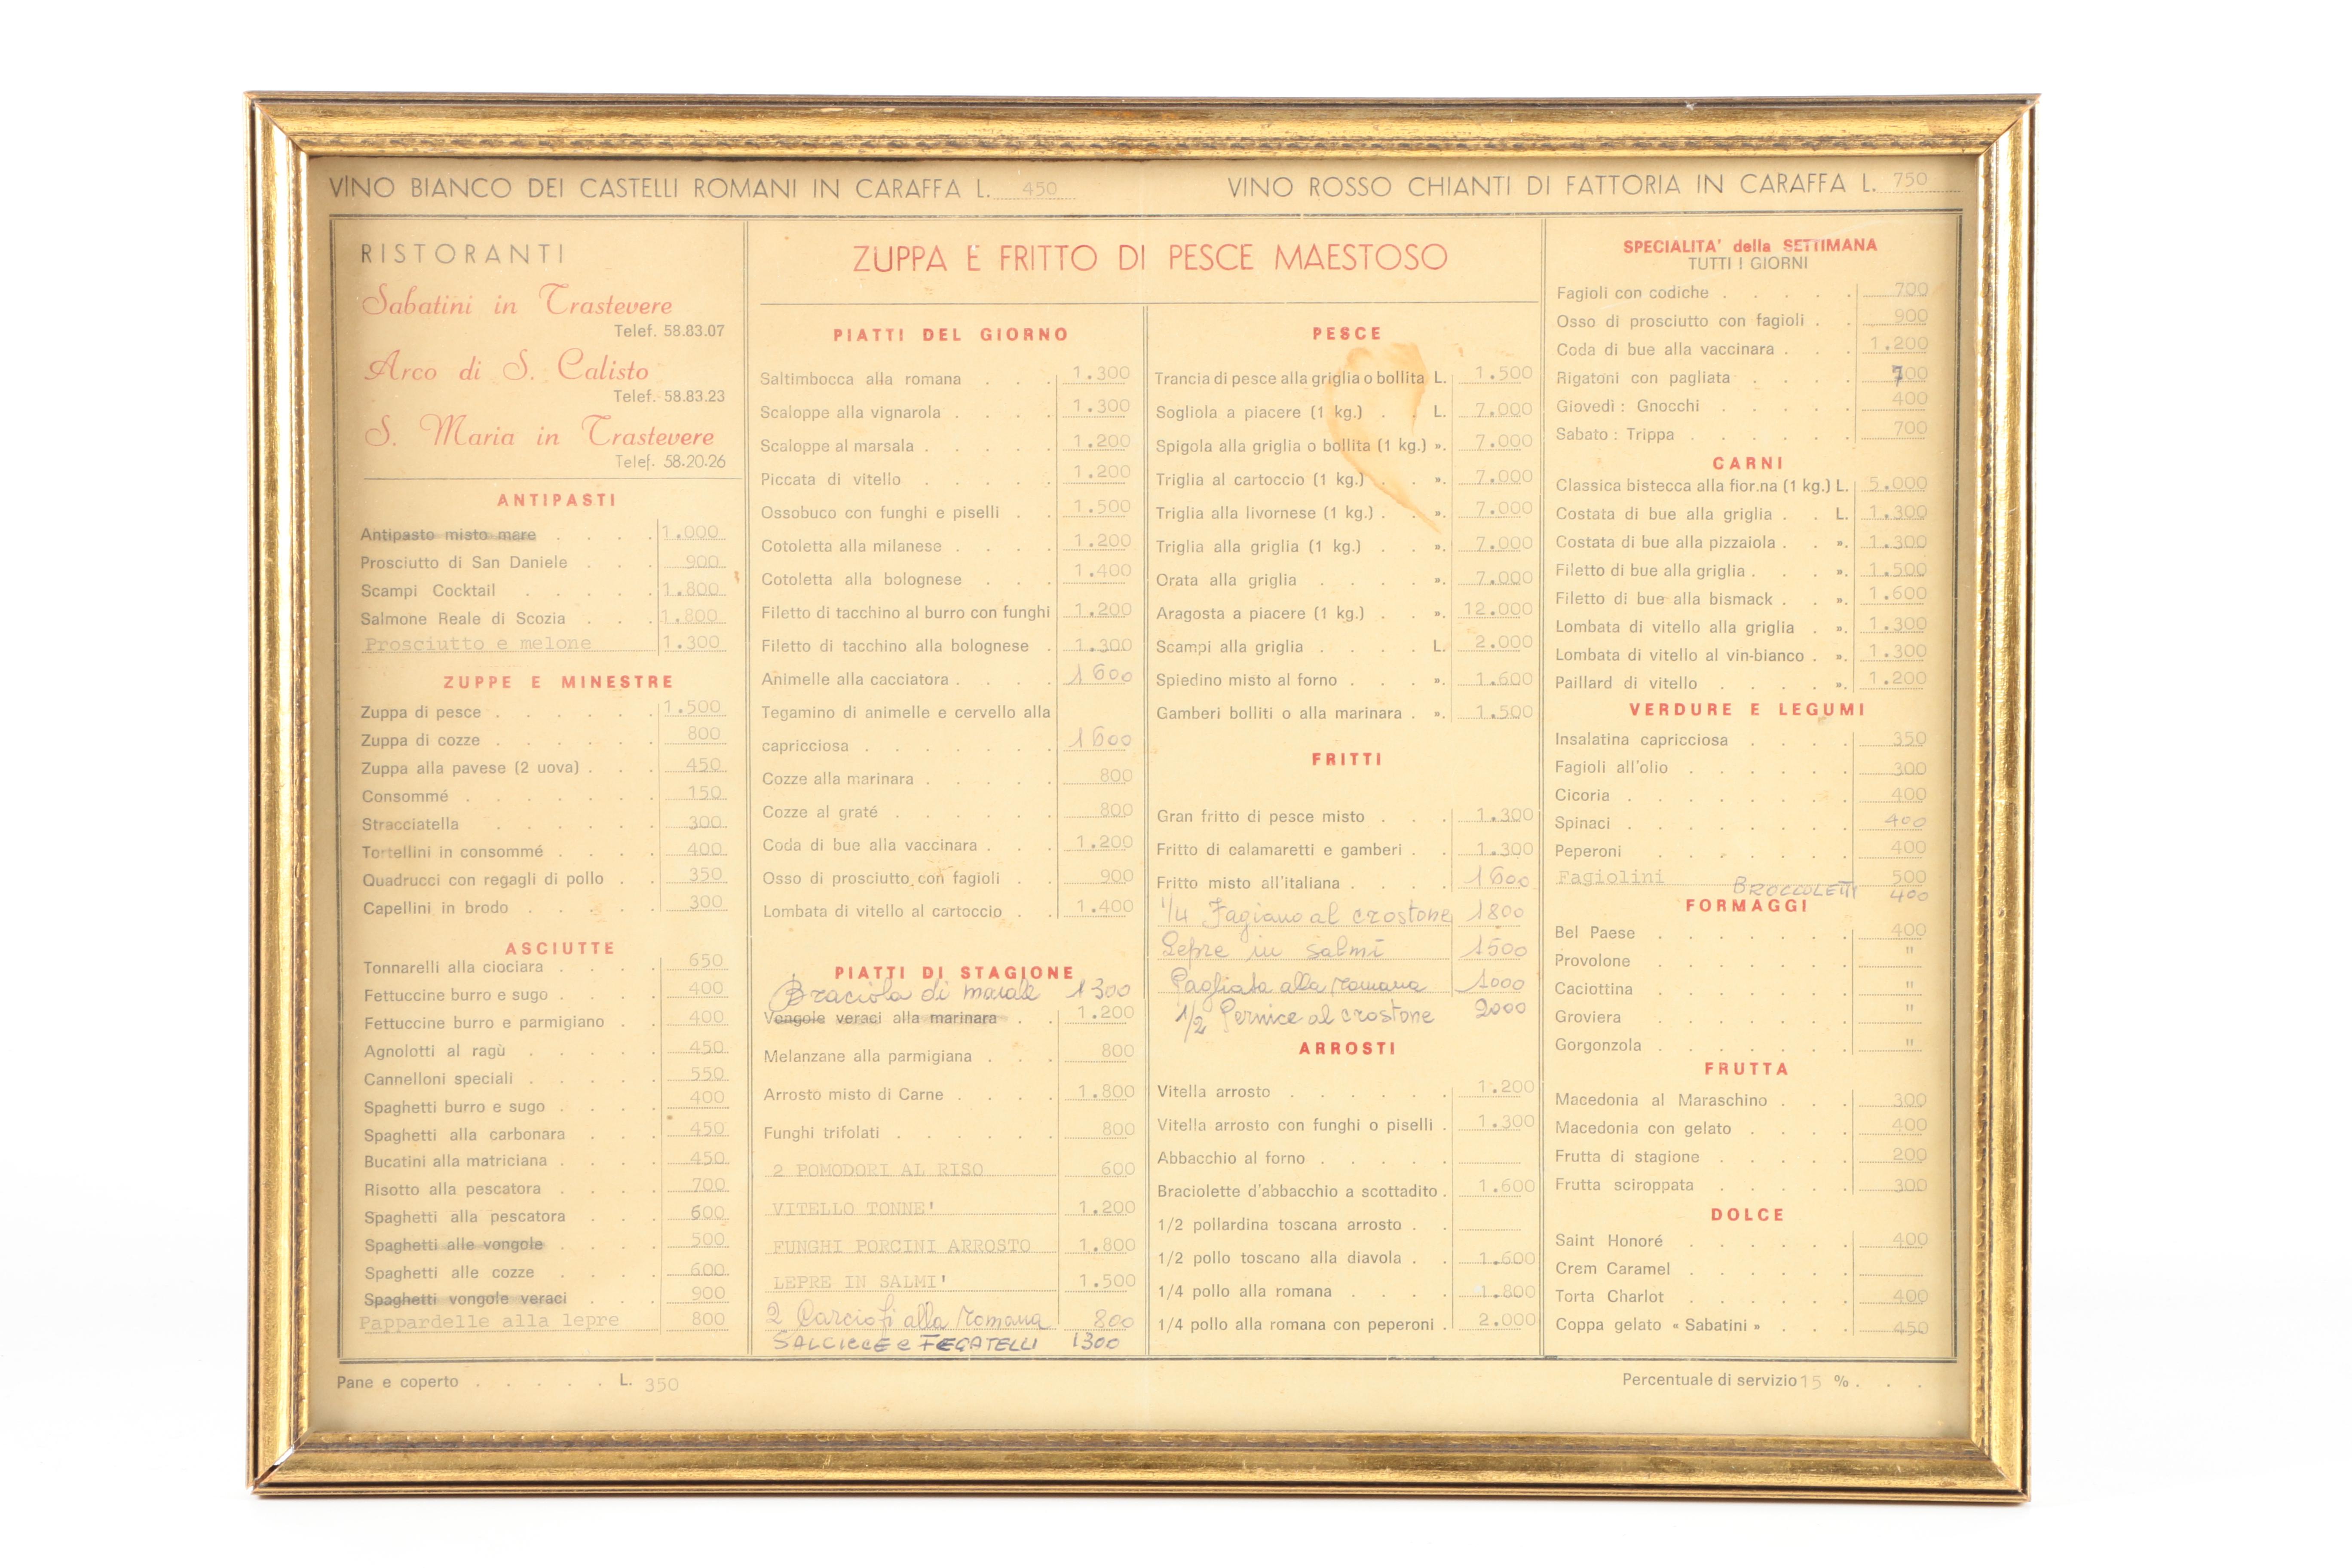 VINO BIANCO DEI CASTELLI ROMANI IN CARAFFA L. 450
VINO ROSSO CHIANTI DI FATTORIA IN CARAFFA L. 750
RISTORANTI
Sabatini in Trastevere
Telef. 58.83.07
Arco di S. Calisto
Telef. 58.83.23
S. Maria in Trastevere
Telef. 58.20.26
ANTIPASTI
Antipasto misto mare . . . . 1.000
Prosciutto di San Daniele . . . 900
Scampi Cocktail . . . . . 1.800
Salmone Reale di Scozia . . . 1.800
Prosciutto e melone 1.300
ZUPPE E MINESTRE
Zuppa di pesce . . . . . . 1.500
Zuppa di cozze . . . . . . 800
Zuppa alla pavese (2 uova) . . . 450
Consommé . . . . . . . 150
Stracciatella . . . . . . 300
Tortellini in consommé . . . . 400
Quadrucci con regagli di pollo . . 350
Capellini in brodo . . . . . 300
ASCIUTTE
Tonnarelli alla ciociara . . . . 650
Fettuccine burro e sugo . . . . 400
Fettuccine burro e parmigiano . . 400
Agnolotti al ragù . . . . . 450
Cannelloni speciali . . . . . 550
Spaghetti burro e sugo . . . . 400
Spaghetti alla carbonara . . . 450
Bucatini alla matriciana . . . . 450
Risotto alla pescatora . . . . 700
Spaghetti alla pescatora . . . 600
Spaghetti alle vongole . . . . 500
Spaghetti alle cozze . . . . 600
Spaghetti vongole veraci . . . 900
Pappardelle alla lepre 800
ZUPPA E FRITTO DI PESCE MAESTOSO
PIATTI DEL GIORNO
Saltimbocca alla romana . . . 1.300
Scaloppe alla vignarola . . . . 1.300
Scaloppe al marsala . . . . . 1.200
Piccata di vitello . . . . . 1.200
Ossobuco con funghi e piselli . . 1.500
Cotoletta alla milanese . . . . 1.200
Cotoletta alla bolognese . . . 1.400
Filetto di tacchino al burro con funghi 1.200
Filetto di tacchino alla bolognese . 1.300
Animelle alla cacciatora . . . . 1600
Tegamino di animelle e cervello alla
capricciosa . . . . . . . 1600
Cozze alla marinara . . . . . 800
Cozze al graté . . . . . . 800
Coda di bue alla vaccinara . . . 1.200
Osso di prosciutto con fagioli . . 900
Lombata di vitello al cartoccio . . 1.400
PIATTI DI STAGIONE
Braciola di maiale 1300
Vongole veraci alla marinara . . 1.200
Melanzane alla parmigiana . . . 800
Arrosto misto di Carne . . . . 1.800
Funghi trifolati . . . . . . 800
2 POMODORI AL RISO 600
VITELLO TONNE' 1.200
FUNGHI PORCINI ARROSTO 1.800
LEPRE IN SALMI' 1.500
2 Carciofi alla romana 800
SALCICCE e FEGATELLI 1300
PESCE
Trancia di pesce alla griglia o bollita L. 1.500
Sogliola a piacere (1 kg.) . . L. 7.000
Spigola alla griglia o bollita (1 kg.) ». 7.000
Triglia al cartoccio (1 kg.) . . ». 7.000
Triglia alla livornese (1 kg.) . . ». 7.000
Triglia alla griglia (1 kg.) . . ». 7.000
Orata alla griglia . . . . ». 7.000
Aragosta a piacere (1 kg.) . . ». 12.000
Scampi alla griglia . . . . L. 2.000
Spiedino misto al forno . . . ». 1.600
Gamberi bolliti o alla marinara . ». 1.500
FRITTI
Gran fritto di pesce misto . . . 1.300
Fritto di calamaretti e gamberi . . 1.300
Fritto misto all'italiana . . . . 1600
1/4 Fagiano al crostone 1800
Lepre in salmì 1500
Pagliata alla romana 1000
1/2 Pernice al crostone 2000
ARROSTI
Vitella arrosto . . . . . . 1.200
Vitella arrosto con funghi o piselli . 1.300
Abbacchio al forno . . . . .
Braciolette d'abbacchio a scottadito . 1.600
1/2 pollardina toscana arrosto . .
1/2 pollo toscano alla diavola . . 1.600
1/4 pollo alla romana . . . . 1.800
1/4 pollo alla romana con peperoni . 2.000
SPECIALITA' della SETTIMANA
TUTTI I GIORNI
Fagioli con codiche . . . . . 700
Osso di prosciutto con fagioli . . 900
Coda di bue alla vaccinara . . . 1.200
Rigatoni con pagliata . . . . 700
Giovedì : Gnocchi . . . . . 400
Sabato : Trippa . . . . . . 700
CARNI
Classica bistecca alla fior.na (1 kg.) L. 5.000
Costata di bue alla griglia . . L. 1.300
Costata di bue alla pizzaiola . . ». 1.300
Filetto di bue alla griglia . . . ». 1.500
Filetto di bue alla bismack . . ». 1.600
Lombata di vitello alla griglia . ». 1.300
Lombata di vitello al vin-bianco . ». 1.300
Paillard di vitello . . . . ». 1.200
VERDURE E LEGUMI
Insalatina capricciosa . . . . 350
Fagioli all'olio . . . . . . 300
Cicoria . . . . . . . 400
Spinaci . . . . . . . 400
Peperoni . . . . . . 400
Fagiolini 500
BROCCOLETTI 400
FORMAGGI
Bel Paese . . . . . . 400
Provolone . . . . . . "
Caciottina . . . . . . "
Groviera . . . . . . "
Gorgonzola . . . . . . "
FRUTTA
Macedonia al Maraschino . . . 300
Macedonia con gelato . . . . 400
Frutta di stagione . . . . . 200
Frutta sciroppata . . . . . 300
DOLCE
Saint Honoré . . . . . . 400
Crem Caramel . . . . . .
Torta Charlot . . . . . . 400
Coppa gelato « Sabatini » . . . 450
Pane e coperto . . . . . L. 350
Percentuale di servizio 15 % . . .